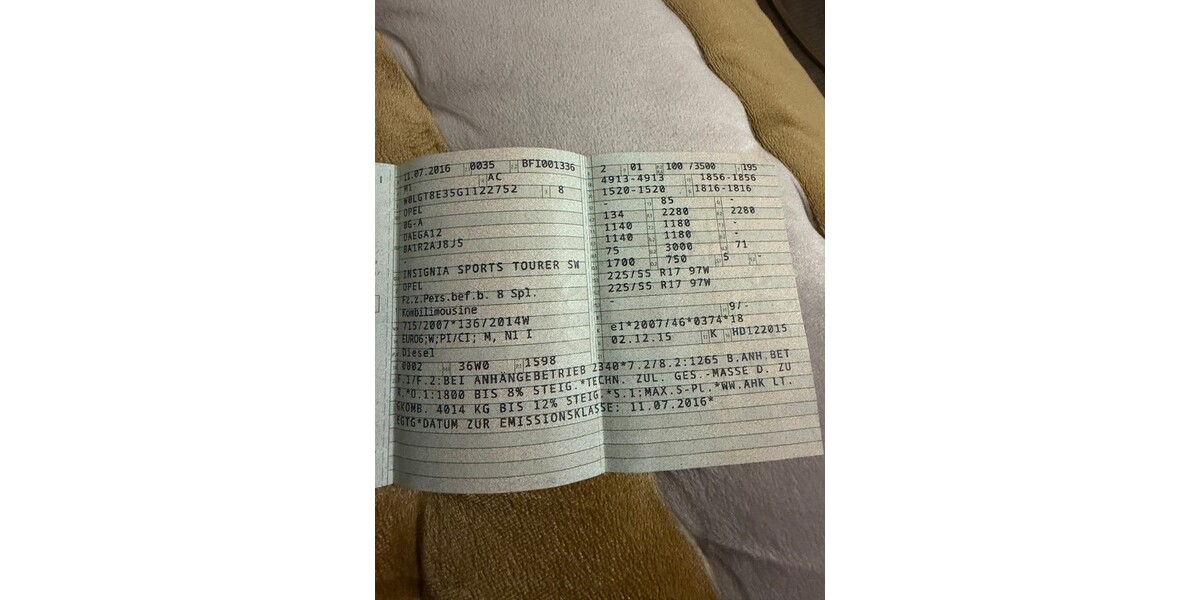 11.07.2016 0035 BFI001336
M1 AC
W0LGT8E35G1122752 8
OPEL
0G-A
DAEGA12
BA1R2AJ8JS
-
INSIGNIA SPORTS TOURER SW
OPEL
Fz.z.Pers.bef.b. 8 Spl.
Kombilimousine
715/2007*136/2014W
EURO6;W;PI/CI; M, N1 I
Diesel
0002 36W0 1598
2 01 100 /3500 195
4913-4913 1856-1856
1520-1520 1816-1816
- 85 -
134 2280 2280
1140 1180 -
1140 1180 -
75 3000 71
1700 750 5 -
225/55 R17 97W
225/55 R17 97W
-
9/-
e1*2007/46*0374*18
02.12.15 K HD122015
F.1/F.2:BEI ANHÄNGEBETRIEB 2340*7.2/8.2:1265 B.ANH.BET
R.*O.1:1800 BIS 8% STEIG.*TECHN. ZUL. GES.-MASSE D. ZU
GKOMB. 4014 KG BIS 12% STEIG.*S.1;MAX.S-PL.*WW.AHK LT.
EGTG*DATUM ZUR EMISSIONSKLASSE: 11.07.2016*